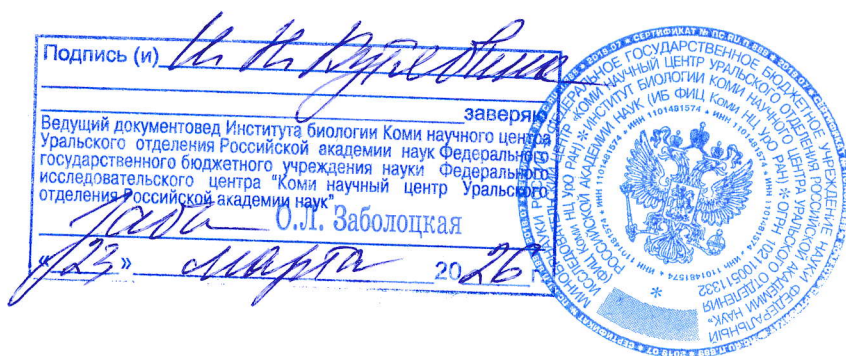 Подпись (и) И. Н. Кутявина
заверяю
Ведущий документовед Института биологии Коми научного центра
Уральского отделения Российской академии наук Федерального
государственного бюджетного учреждения науки Федерального
исследовательского центра "Коми научный центр Уральского
отделения Российской академии наук"
О.Л. Заболоцкая
«23» марта 2026 г.
МИНОБРНАУКИ РОССИИ * ФЕДЕРАЛЬНОЕ ГОСУДАРСТВЕННОЕ БЮДЖЕТНОЕ УЧРЕЖДЕНИЕ НАУКИ ФЕДЕРАЛЬНЫЙ
ИССЛЕДОВАТЕЛЬСКИЙ ЦЕНТР «КОМИ НАУЧНЫЙ ЦЕНТР УРАЛЬСКОГО ОТДЕЛЕНИЯ РОССИЙСКОЙ АКАДЕМИИ НАУК»
(ФИЦ Коми НЦ УрО РАН) * ИНСТИТУТ БИОЛОГИИ КОМИ НАУЧНОГО ЦЕНТРА УРАЛЬСКОГО ОТДЕЛЕНИЯ
РОССИЙСКОЙ АКАДЕМИИ НАУК (ИБ ФИЦ Коми НЦ УрО РАН) * ОГРН 1021100511332
* ИНН 1101481574 * ИНН 1101481574
* СЕРТИФИКАТ № ПС.RU.П.889 * 2018.07